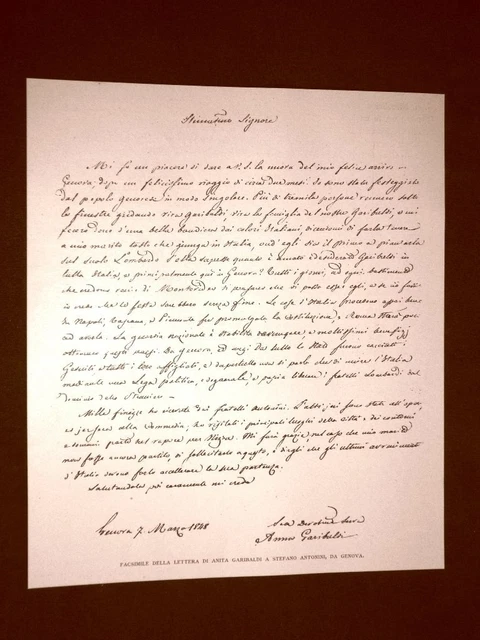 Stimatissimo Signore
Mi fo un piacere di dare a V. S. la nuova del mio felice arrivo a
Genova, dopo un felicissimo viaggio di circa due mesi. Io sono stata festeggiata
dal popolo genovese in modo singolare. Più di tremila persone vennero sotto
le finestre gridando viva Garibaldi, viva la famiglia del nostro Garibaldi, e mi
fecero dono d'una bella bandiera dai colori Italiani, dicendomi di farla avere
a mio marito tosto che giunga in Italia, ond'egli sia il primo a piantarla
sul suolo Lombardo. Se sapesse quanto è amato e desiderato Garibaldi in
tutta Italia, e principalmente qui in Genova! Tutti i giorni, ad ogni bastimento
che credono venir di Montevideo
Le cose d'Italia procedono assai bene.
In Napoli, Toscana, e Piemonte fu promulgata la Costituzione, e Roma
La guardia nazionale è stabilita e moltissimi benefizi
ottennero questi paesi. Da Genova, ed anzi da tutto lo Stato furono cacciati i
Gesuiti e tutti i loro affigliati, e dappertutto non si parla che di unire l'Italia
mediante una Lega politica, e doganale, e poscia liberare i fratelli Lombardi dal
dominio dello Straniero.
Mille finezze ho ricevute dai fratelli Antonini.
alla Commedia, ho visitati i principali luoghi della città e dei contorni
e domani parto col vapore per Nizza. Mi farà grazia nel caso che mio marito
non fosse ancora partito, di sollecitarlo a questo, e dirgli che gli ultimi avvenimenti
d'Italia devono farlo accellerare la sua partenza.
Salutandola più caramente mi creda
Genova 7. Marzo 1848
Sua Devotma Serva
Anna Garibaldi
FACSIMILE DELLA LETTERA DI ANITA GARIBALDI A STEFANO ANTONINI, DA GENOVA.